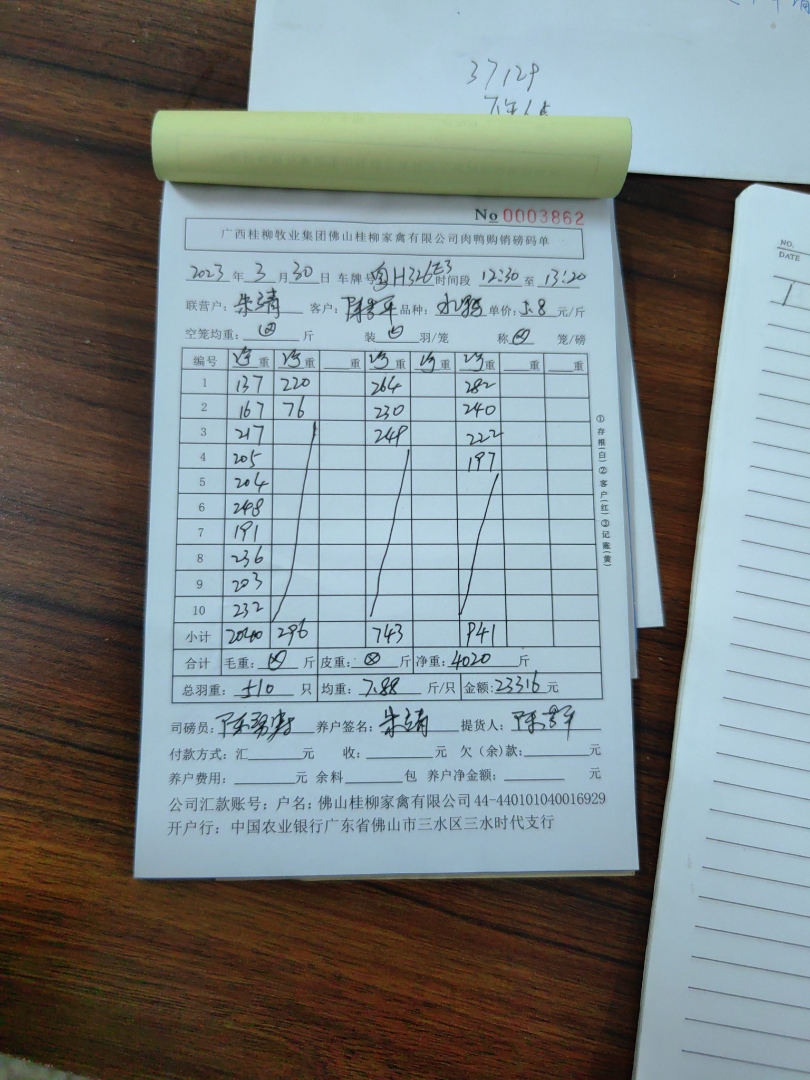 37129
No 0003862
广西桂柳牧业集团佛山桂柳家禽有限公司肉鸭购销磅码单
2023 年 3 月 30 日 车牌号 粤H326E3 时间段 12:30 至 13:20
联营户: 朱靖 客户: 品种: 水鸭 单价: 5.8 元/斤
空笼均重: 斤 装 羽/笼 称 笼/磅
编号 净重 净重 重 净重 净重 净重 重 重
1 137 220 264 282
2 167 76 230 240
3 217 249 222
4 205 197
5 204
6 248
7 191
8 236
9 203
10 232
小计 2040 296 743 941
合计 毛重: 斤 皮重: 斤 净重: 4020 斤
总羽重: 510 只 均重: 7.88 斤/只 金额: 23316 元
司磅员: 养户签名: 朱靖 提货人:
付款方式: 汇 元 收: 元 欠(余)款: 元
养户费用: 元 余料 包 养户净金额: 元
公司汇款账号: 户名: 佛山桂柳家禽有限公司 44-440101040016929
开户行: 中国农业银行广东省佛山市三水区三水时代支行
①存根(白)②客户(红)③记账(黄)
NO.
DATE